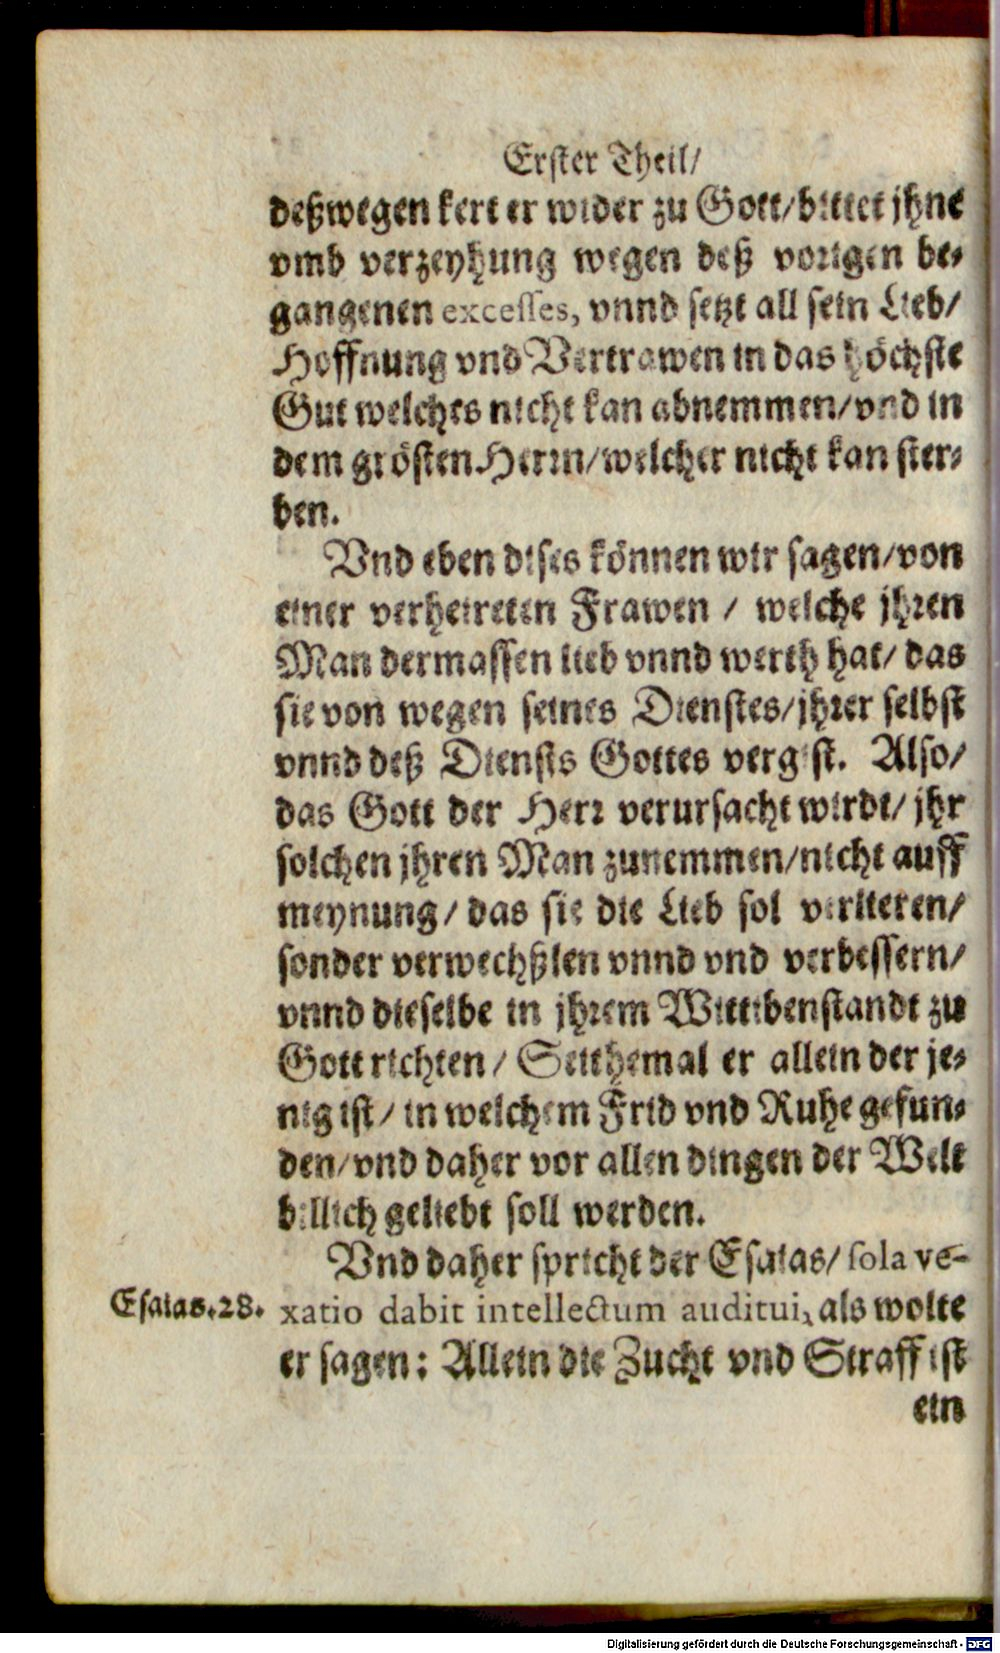 Erster Theil/
deßwegen kert er wider zu Gott/bittet jhne
vmb verzeyhung wegen deß vorigen be-
gangenen excesses, vnnd setzt all sein Lieb/
Hoffnung vnd Vertrawen in das höchste
Gut welches nicht kan abnemmen/vnd in
dem grösten Herrn/welcher nicht kan ster-
ben.
Vnd eben dises können wir sagen/von
einer verheireten Frawen / welche jhren
Man dermassen lieb vnnd werth hat/ das
sie von wegen seines Dienstes/jhrer selbst
vnnd deß Diensts Gottes vergist. Also/
das Gott der Herr verursacht wirdt/ jhr
solchen jhren Man zunemmen/nicht auff
meynung/ das sie die Lieb sol verlieren/
sonder verwechßlen vnnd vnd verbessern/
vnnd dieselbe in jhrem Wittibenstandt zu
Gott richten/ Seithemal er allein der je-
nig ist/ in welchem Frid vnd Ruhe gefun-
den/vnd daher vor allen dingen der Welt
billich geliebt soll werden.
Vnd daher spricht der Esaias/ sola ve-
Esaias.28. xatio dabit intellectum auditui, als wolte
er sagen: Allein die Zucht vnd Straff ist
ein
Digitalisierung gefördert durch die Deutsche Forschungsgemeinschaft - DFG